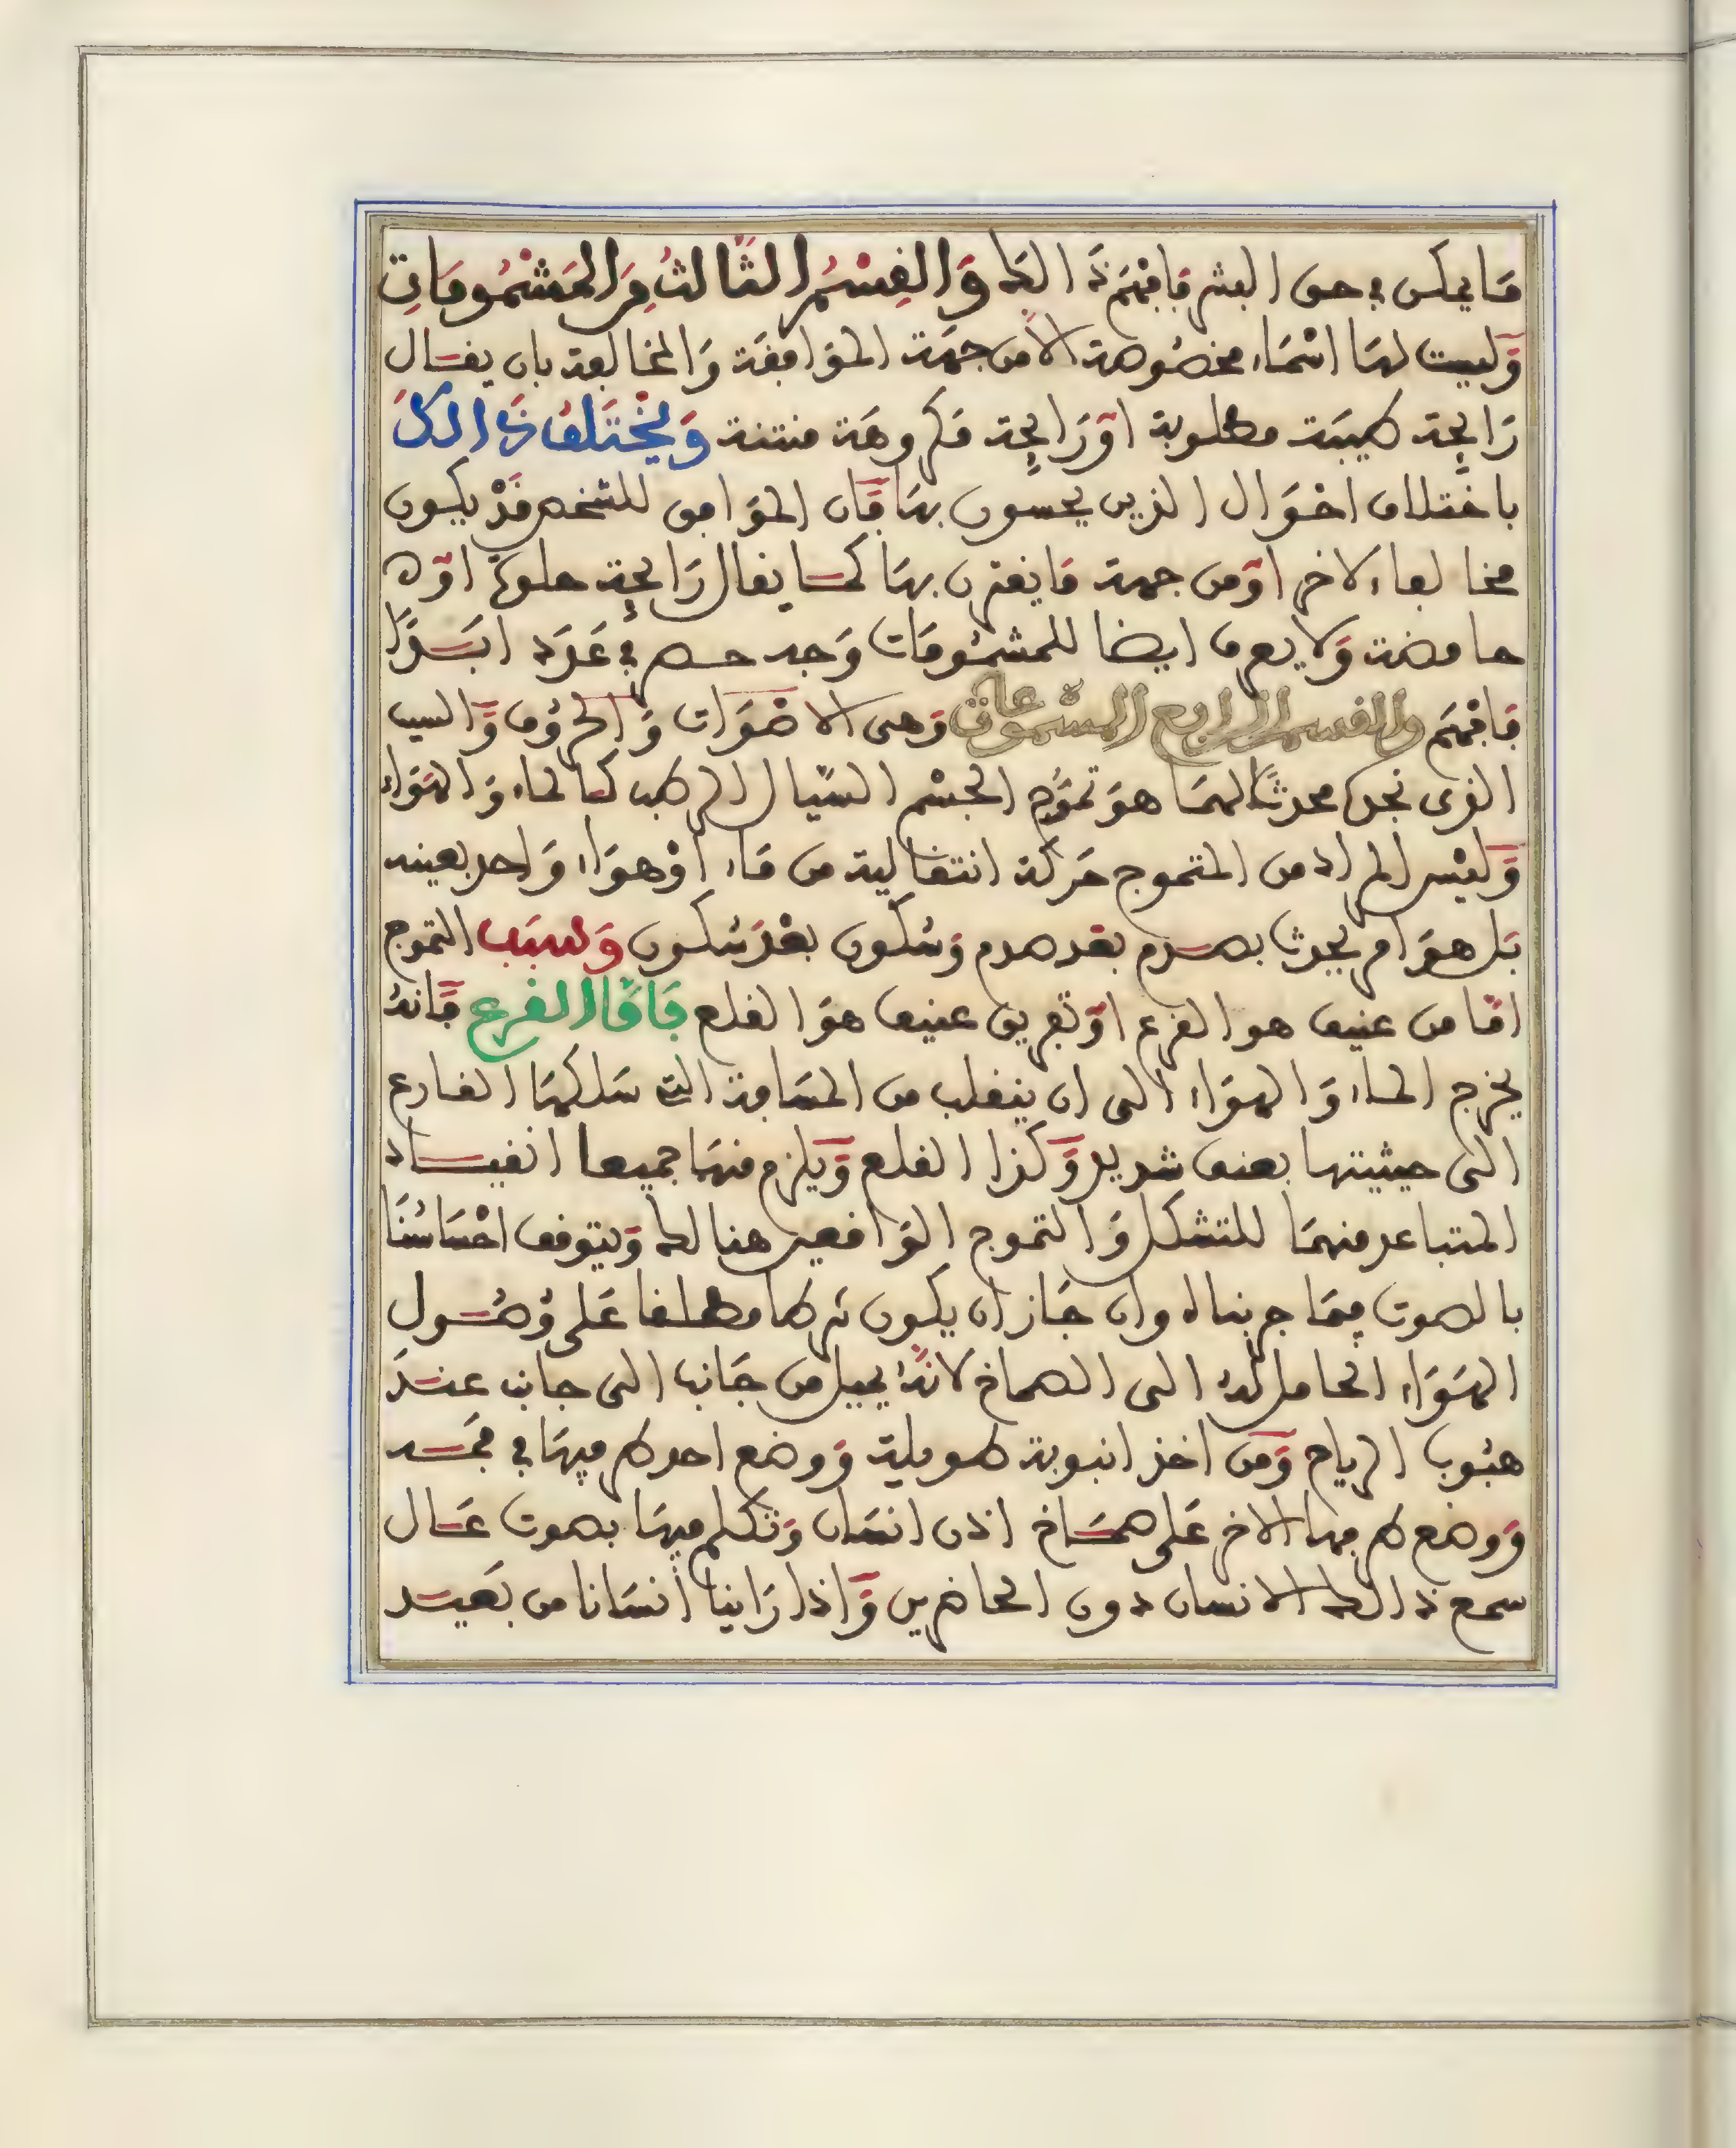 ما يمكن في حق البشر فافهم ذالك والقسم الثالث من المشمومات
وليست لها اسماء مخصوصة الا من جهة الموافقة والمخالفة بان يقال
رايحة طيبة مطلوبة او رايحة مكروهة منتنة ويختلف ذالك
باختلاف احوال الذين يحسون بها فان الموافق للشخص قد يكون
مخالفا لاخر او من جهة ما يقترن بها كما يقال رايحة حلوة او
حامضة ولا يعرف ايضا للمشمومات وجه حصر في عدد ابدا
فافهم والقسم الرابع المسموعات وهي الاصوات والحروف والسبب
الذي نجده محدثا لهما هو تموج الجسم السيال الرطب كالماء والهواء
وليس المراد من التموج حركة انتقالية من ماء او هواء واحد بعينه
بل هو امر يحدث بصدم بعد صدم وسكون بعد سكون وسبب التموج
اما من عنيف هو القرع او تفريق عنيف هو القلع فاما القرع فانه
يخرج الماء والهواء الى ان ينقلب من المسافة التي سلكها القارع
الى حيثيتها بعنف شديد وكذا القلع ويلزم منها جميعا انقياد
المتباعد منهما للتشكل والتموج الواقعين هنالك ويتوقف احساسنا
بالصوت فيما جربناه وان جاز ان يكون شرطا مطلقا على وصول
الهواء الحامل له الى الصماخ لانه يميل من جانب الى جانب عند
هبوب الرياح ومن اخذ انبوبة طويلة ووضع احد طرفيها في فمه
ووضع طرفها الاخر على صماخ اذن انسان وتكلم فيها بصوت عال
سمع ذالك الانسان دون الحاضرين واذا راينا انسانا من بعيد